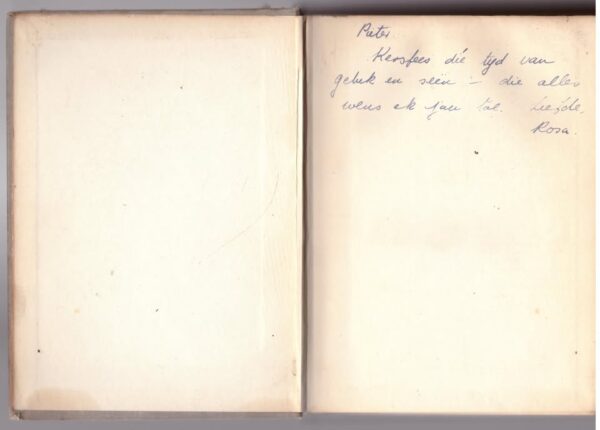 Pieter.
Kersfees dié tyd van
geluk en seën – die alles
wens ek jou toe. Liefde,
Rosa.